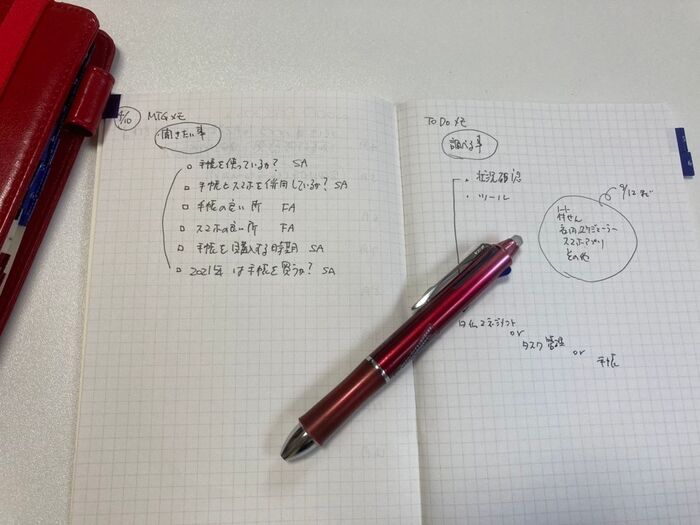 9/10 MTGメモ
聞きたい事
手帳を使っているか? SA
手帳とスマホを併用しているか? SA
手帳の良い所 FA
スマホの良い所 FA
手帳を購入する時期 SA
2021年は手帳を買うか? SA
ToDoメモ
調べる事
・状況確認
・ツール
9/12まで
ノート
付せん
スマホアプリ
その他
タイムマネジメント
or
タスク管理
or
手帳